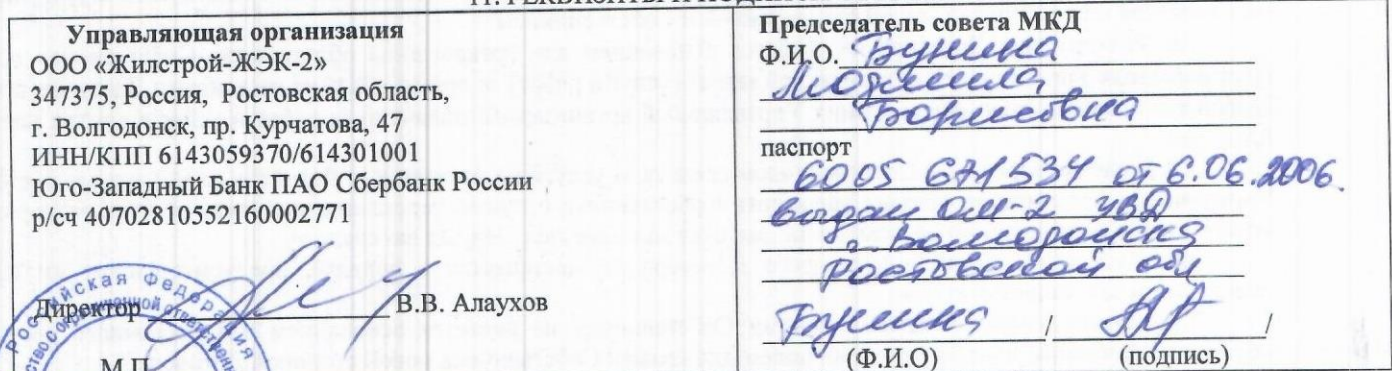 Управляющая организация
ООО «Жилстрой-ЖЭК-2»
347375, Россия, Ростовская область,
г. Волгодонск, пр. Курчатова, 47
ИНН/КПП 6143059370/614301001
Юго-Западный Банк ПАО Сбербанк России
р/сч 40702810552160002771
Директор В.В. Алаухов
М.П.
Российская Федерация
Председатель совета МКД
Ф.И.О. Бунина
Людмила
Борисовна
паспорт
6005 671534 от 6.06.2006.
выдан ОМ-2 УВД
г. Волгодонска
Ростовской обл
Бунина / /
(Ф.И.О) (подпись)